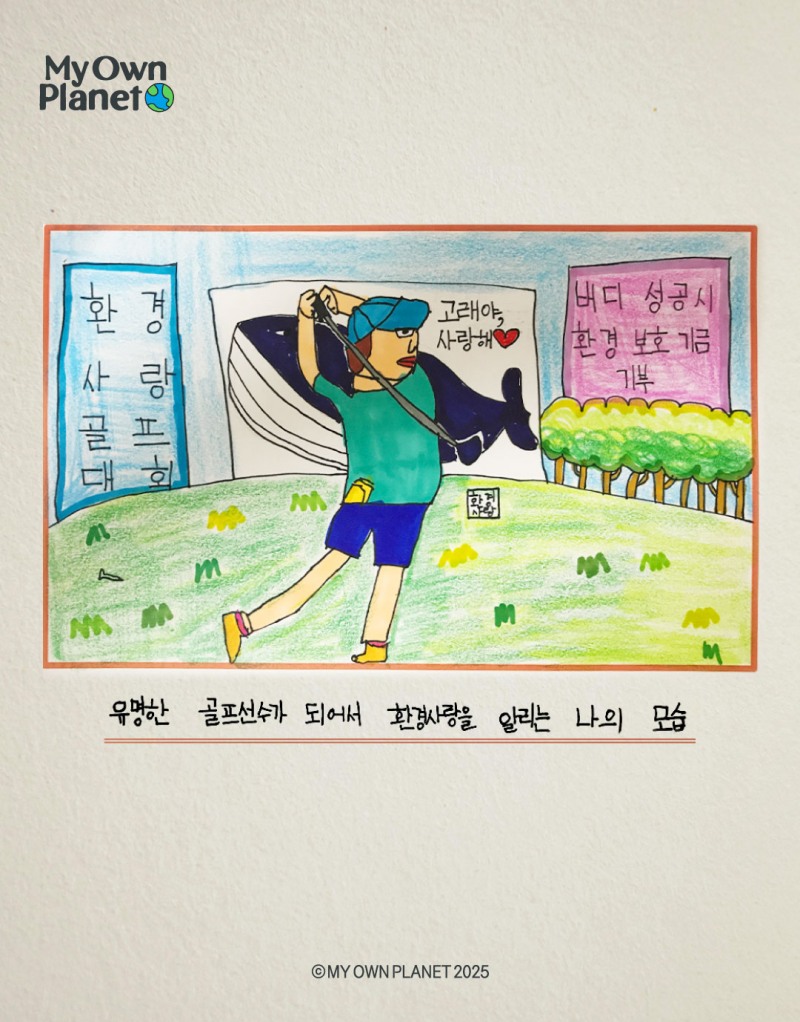 My Own
Planet
환경
사랑
골프
대회
고래야,
사랑해
버디 성공시
환경 보호 기금
기부
환경
사랑
유명한 골프선수가 되어서 환경사랑을 알리는 나의 모습
©MY OWN PLANET 2025